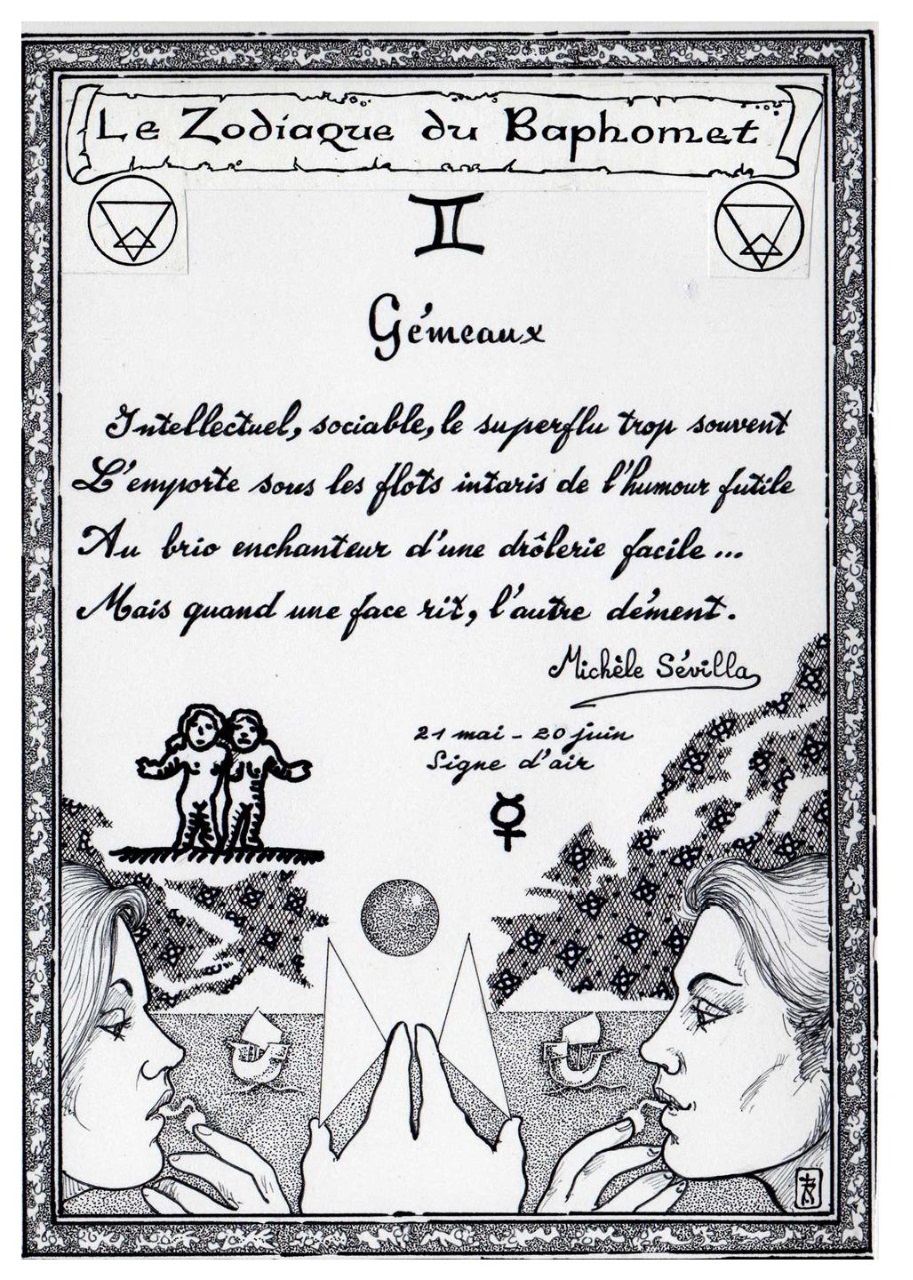 Le Zodiaque du Baphomet
♊
Gémeaux
Intellectuel, sociable, le superflu trop souvent
L'emporte sous les flots intaris de l'humour futile
Au brio enchanteur d'une drôlerie facile ...
Mais quand une face rit, l'autre dément.
Michèle Sévilla
21 mai - 20 juin
Signe d'air
☿